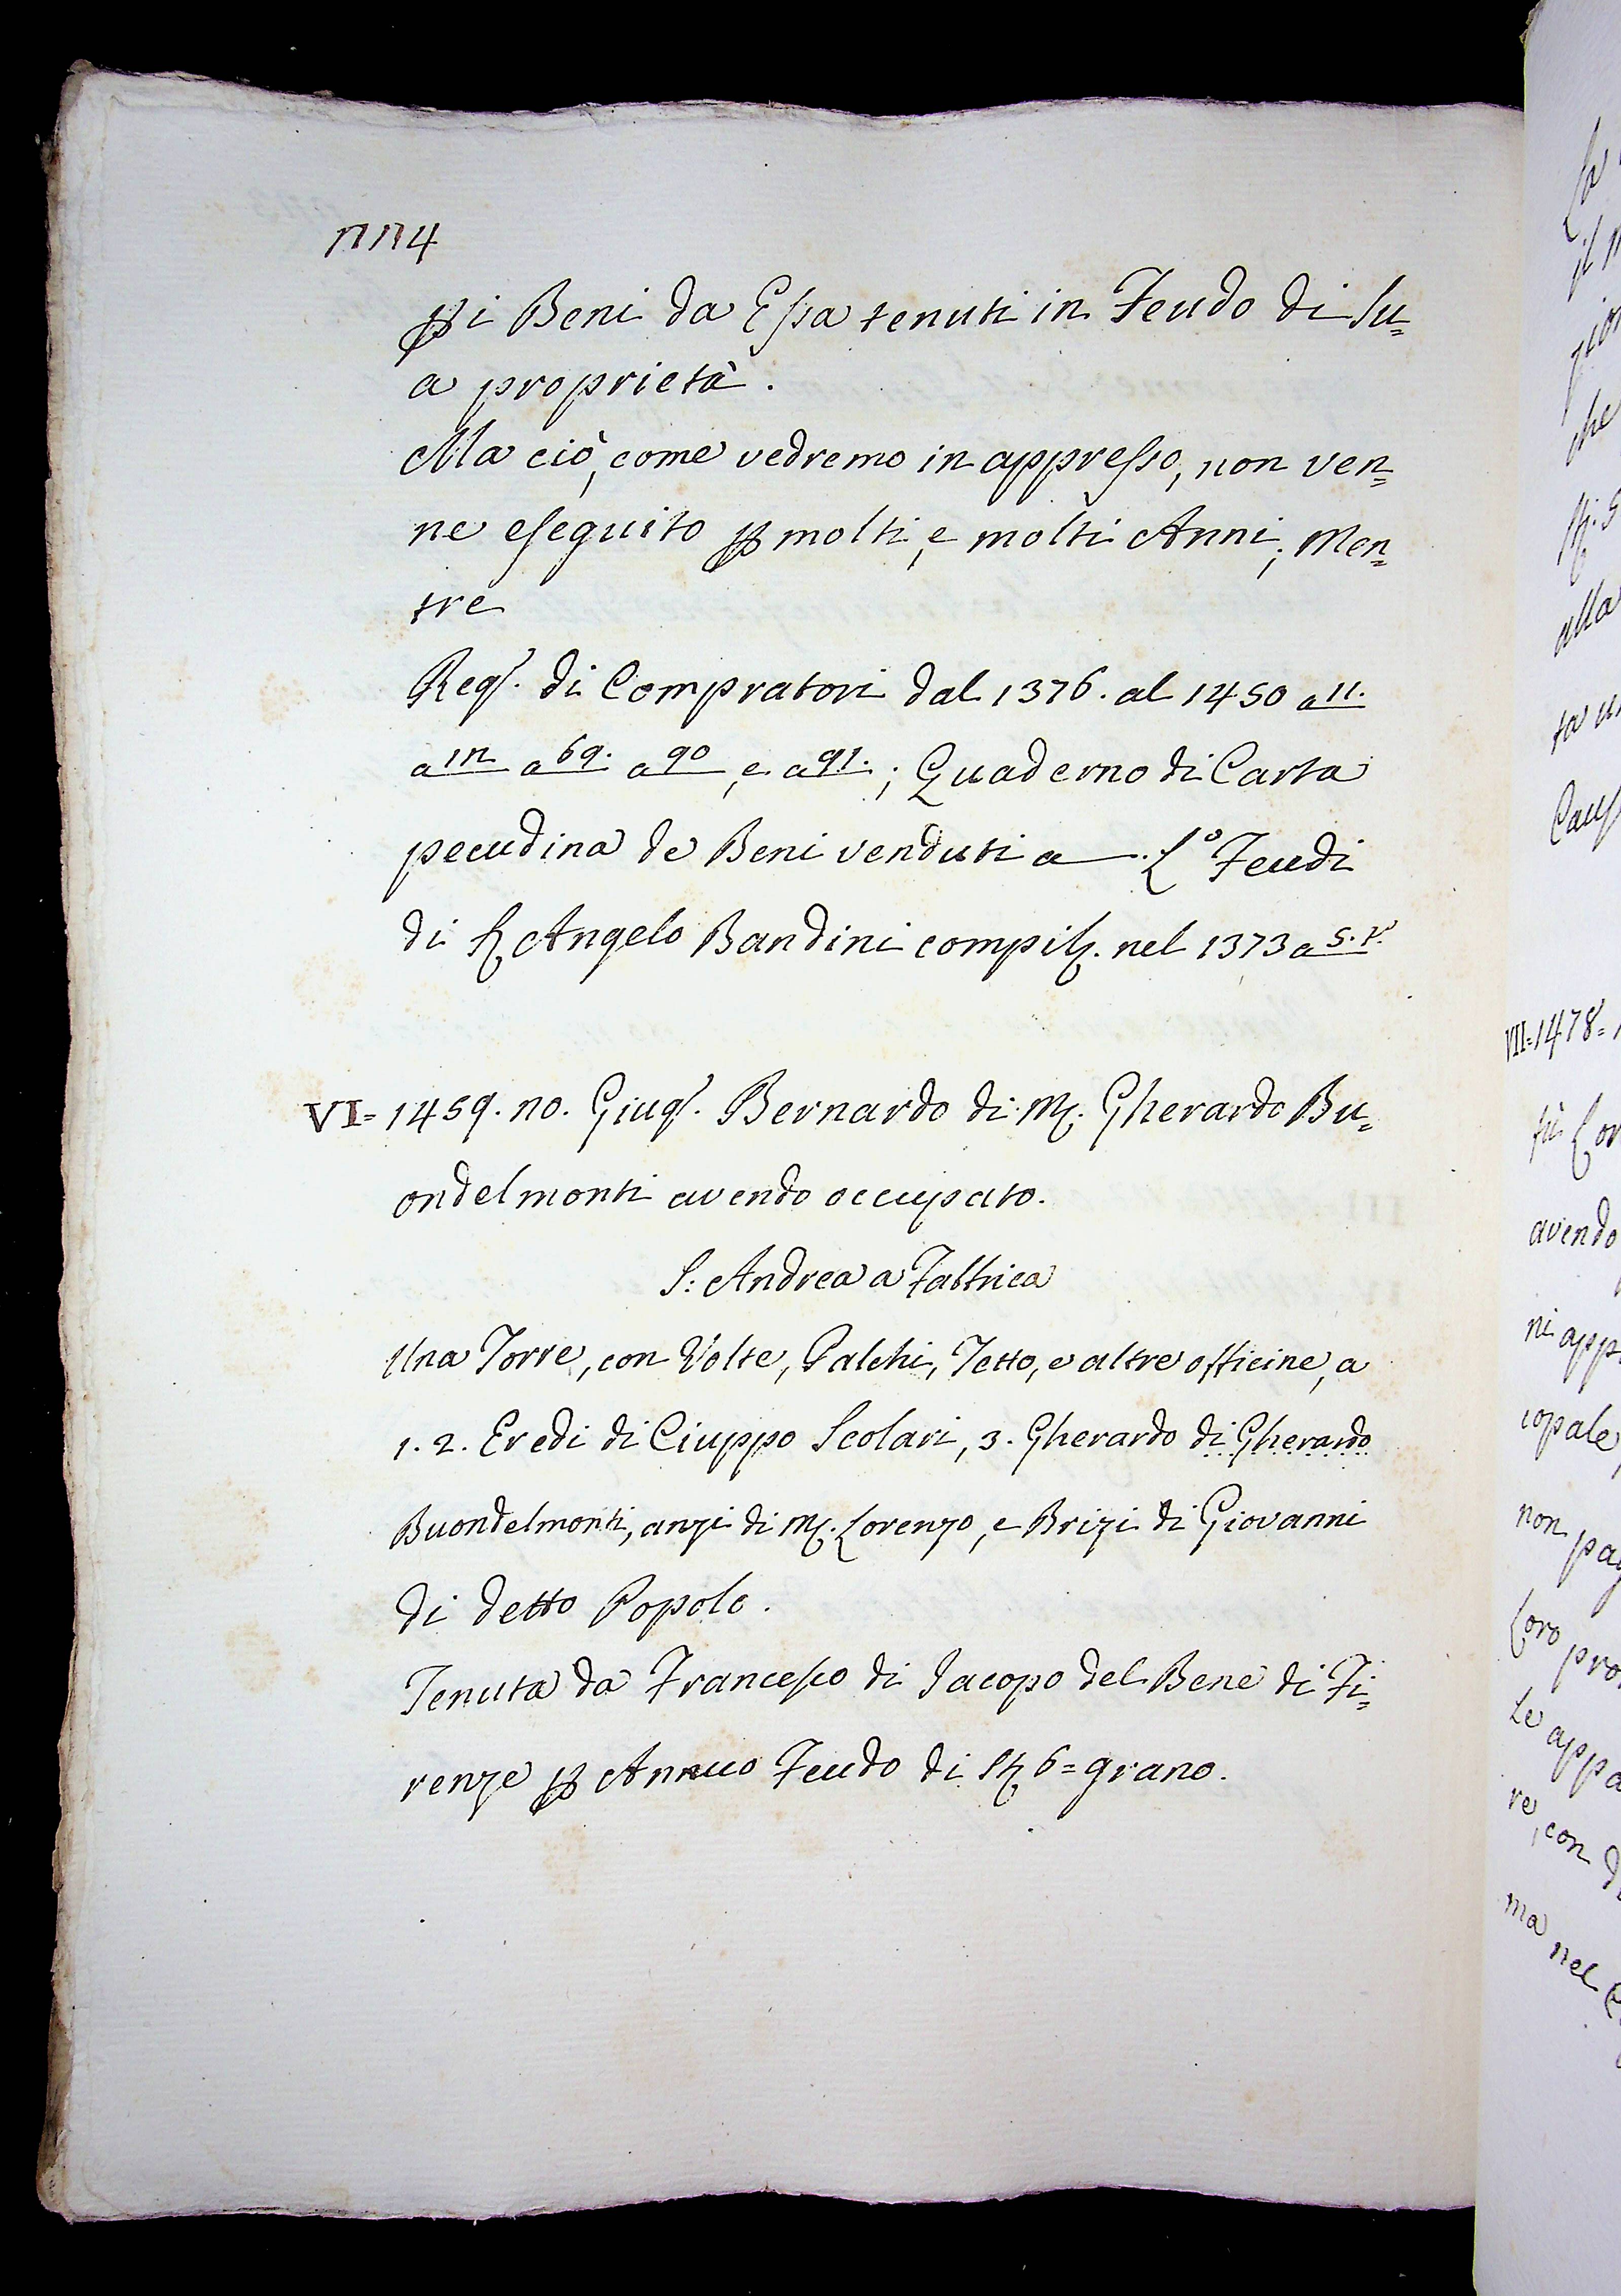 224
ꝑ i Beni da Eſsa tenuti in Feudo di Su=
a proprietà.
Ma ciò, come vedremo in appreſso, non ven=
ne eſeguito ꝑ molti, e molti Anni; Men=
tre
Reg.º di Compratori dal 1376. al 1450 a 11.
a 12 a 69. a 90, e a 91.; Quaderno di Carta
pecudina de Beni venduti a —. L.º Feudi
di S. Angelo Bandini compil. nel 1373 a 5. t.
VI = 1459. 20. Giug.º Bernardo di M. Gherardo Bu=
ondelmonti avendo occupato.
S: Andrea a Fabbrica
Una Torre, con Volte, Palchi, Tetto, e altre officine, a
1. 2. Eredi di Ciuppo Scolari, 3. Gherardo di Gherardo
Buondelmonti, anzi di M. Lorenzo, e Brizi di Giovanni
di detto Popolo.
Tenuta da Franceſco di Jacopo del Bene di Fi=
renze ꝑ Annuo Feudo di St. 6 = grano.
VII = 1478 =
avendo
ni app
copale,
non pag
Loro pro
Le appa
re, con
ma nel
che
alla